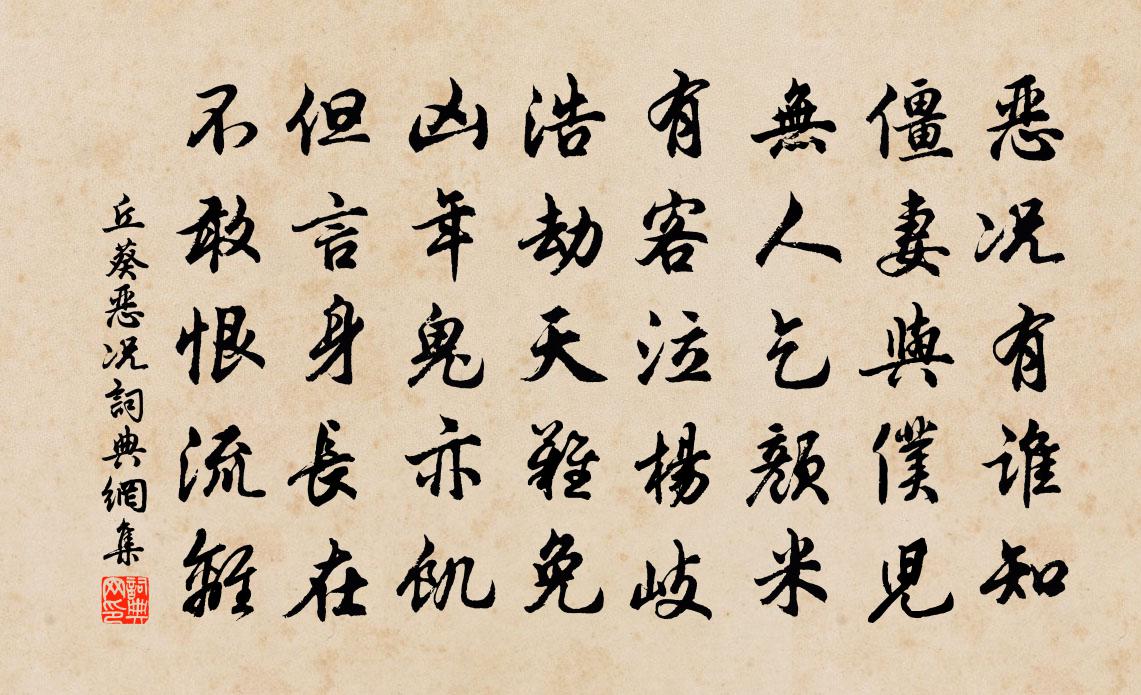 恶况有谁知
僵妻與僕児
無人乞顔米
有客泣楊岐
浩劫天難免
凶年鬼亦飢
但言身長在
不敢恨流離
丘葵恶况詞典網集
詞典网印